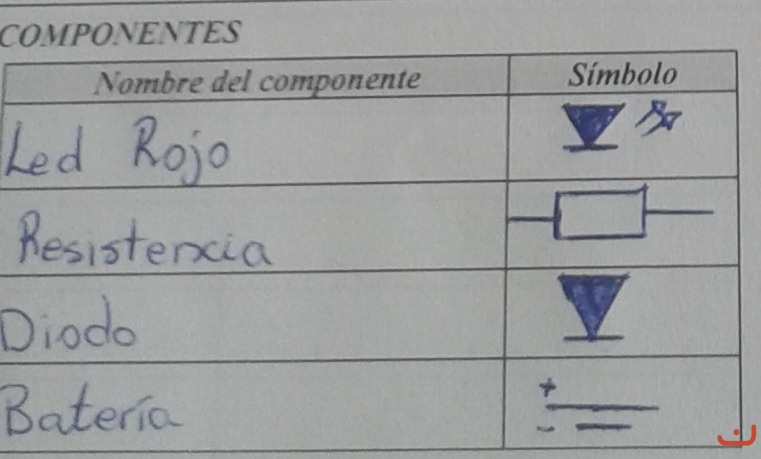 COMPONENTES
Nombre del componente Símbolo
Led Rojo
Resistencia
Diodo
Batería
+
-